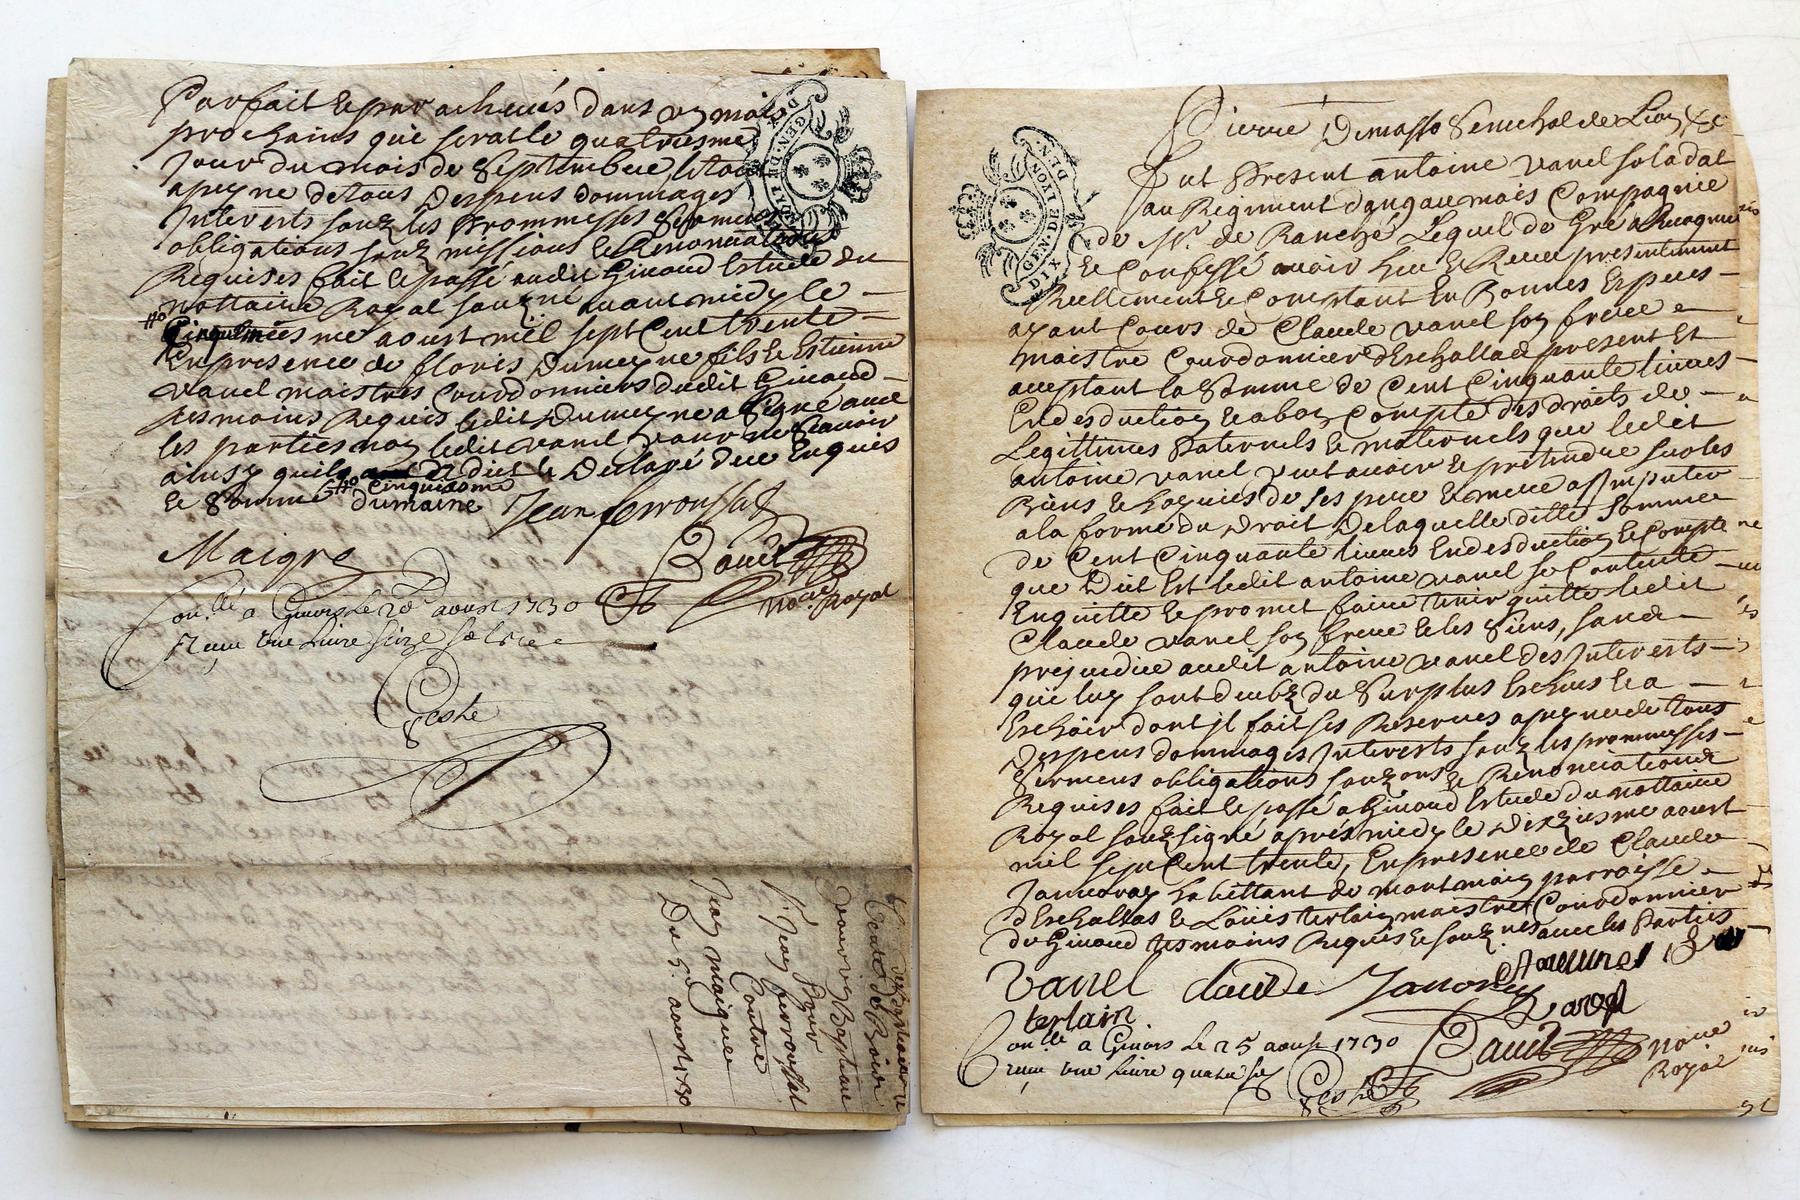 Parfait Et parachevés dans un mois
prochains qui sera le quatriesme
Jour du mois de Septembre, le tout
apeyne de tous Despens dommages
Interests souz les Prommesses Serments
obligations souz missions Et Renonciations
Requises fait Et passé audit Givord Estude du
nottaire Royal souzné avant midy le
Cinquiesme aoust mil sept Cent trente
En presence de floris Dumeyne fils Et Estienne
Vanel maistres Courdonniers dudit Givord
tesmoins Requis ledit Dumeyne a Signé avec
les parties non ledit vanel pour ne Scavoir
ainsy quil a dit Et Declaré de ce Enquis
Et Sommé
Dumaine Jean ferroussat
Maigre
Bauit
no.re Royal
Con.llé a Givors Le 20e aoust 1730
Receu une livre seize sols
Geste
DIX DEN. GEN. DE LYON
Pour
Sr Jean ferroussat
Contre
Jean maigre
Du 5e aoust 1730
Pierre Dumasso Senechal de Lion &c
Fut Present antoine vanel soladat
au Regiment dangaumois Compagnie
de Mr. de Ranché Lequel de Gré a Recognu
Et Confessé avoir heu Et Receu presentement
Reellement Et Comptant En Bonnes Especes
ayant Cours de Claude vanel son frere
maistre Courdonnier d'Eschallas present Et
acceptant la Somme de Cent Cinquante livres
En desduction Et abon Compte des droits de
Legittimes Paternels Et maternels que ledit
antoine vanel peut avoir Et pretendre sur les
Biens Et hoyries de ses pere Et mere a Imputer
a la forme du Droit De laquelle ditte Somme
de Cent Cinquante livres En desduction Et Compte
que Dit Est ledit antoine vanel se Contente
En quitte Et promet faire tenir quitte ledit
Claude vanel son frere Et les Siens, sans
prejudice audit antoine vanel des Interests
qui luy sont deubz du Surplus Escheus Et a
Escheoir dont Il fait ses Reserves apeyne de tous
Despens dommages Interests souz les prommesses
Sermens obligations souz ons Et Renonciations
Requises fait Et passé a Givord Estude du nottaire
Royal souz signé aprés midy le Dixiesme aoust
mil sept Cent trente, En presence de Claude
Janoray habittant de montmain parroisse
d'Eschallas Et Loüis terlain maistre Courdonnier
du Givord tesmoins Requis Et souz nés avec les Parties
vanel claude Janoray
terlain
Bauit no.re
Royal
Con.llé a Givors Le 25 aoust 1730
Receu une livre quatre sols
Geste
DIX DEN. GEN. DE LYON